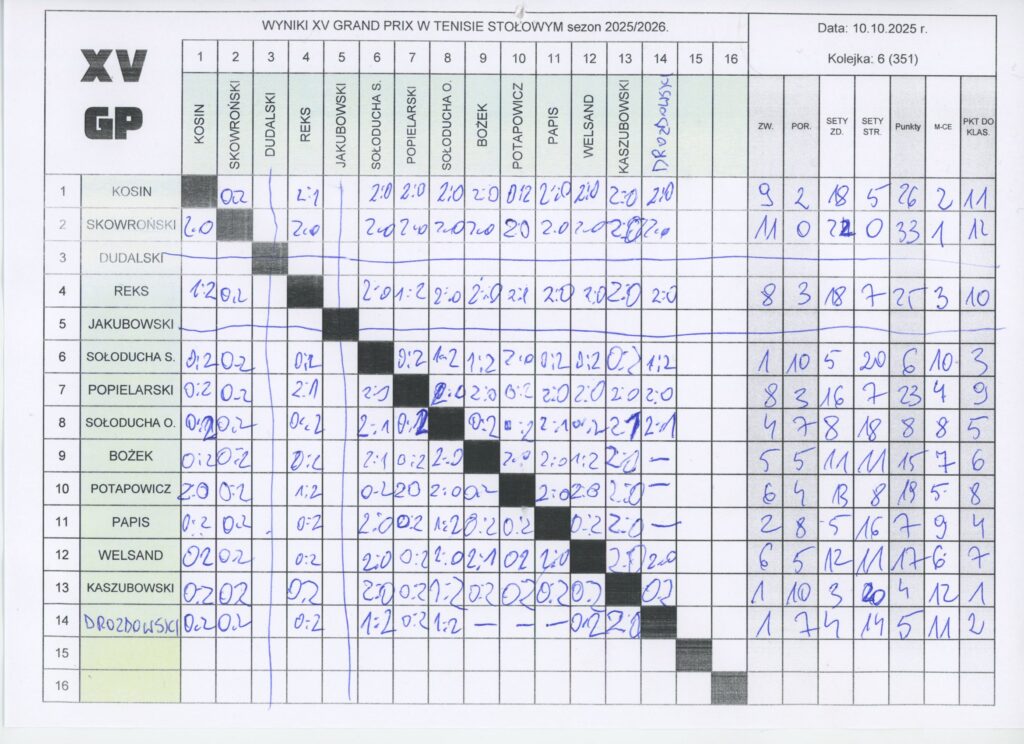 WYNIKI XV GRAND PRIX W TENISIE STOŁOWYM sezon 2025/2026.
Data: 10.10.2025 r.
Kolejka: 6 (351)
XV
GP
1 2 3 4 5 6 7 8 9 10 11 12 13 14 15 16
KOSIN SKOWROŃSKI DUDALSKI REKS JAKUBOWSKI SOŁODUCHA S. POPIELARSKI SOŁODUCHA O. BOŻEK POTAPOWICZ PAPIS WELSAND KASZUBOWSKI DROZDOWSKI
ZW. POR. SETY ZD. SETY STR. Punkty M-CE PKT DO KLAS.
1 KOSIN 0:2 2:1 2:0 2:0 2:0 2:0 0:2 2:0 2:0 2:0 2:0 9 2 18 5 26 2 11
2 SKOWROŃSKI 2:0 2:0 2:0 2:0 2:0 2:0 2:0 2:0 2:0 2:0 2:0 11 0 22 0 33 1 12
3 DUDALSKI
4 REKS 1:2 0:2 2:0 1:2 2:0 2:0 2:1 2:0 2:0 2:0 2:0 8 3 18 7 25 3 10
5 JAKUBOWSKI
6 SOŁODUCHA S. 0:2 0:2 0:2 0:2 1:2 1:2 2:0 0:2 0:2 0:2 1:2 1 10 5 20 6 10 3
7 POPIELARSKI 0:2 0:2 2:1 2:0 2:0 2:0 0:2 2:0 2:0 2:0 2:0 8 3 16 7 23 4 9
8 SOŁODUCHA O. 0:2 0:2 0:2 2:1 0:2 0:2 0:2 2:1 0:2 2:1 2:1 4 7 8 18 8 8 5
9 BOŻEK 0:2 0:2 0:2 2:1 0:2 2:0 2:0 2:0 1:2 2:0 — 5 5 11 11 15 7 6
10 POTAPOWICZ 2:0 0:2 1:2 0:2 2:0 2:0 0:2 2:0 2:0 2:0 — 6 4 13 8 19 5 8
11 PAPIS 0:2 0:2 0:2 2:0 0:2 1:2 0:2 0:2 0:2 2:0 — 2 8 5 16 7 9 4
12 WELSAND 0:2 0:2 0:2 2:0 0:2 2:0 2:1 0:2 2:0 2:0 2:0 6 5 12 11 17 6 7
13 KASZUBOWSKI 0:2 0:2 0:2 2:0 0:2 1:2 0:2 0:2 0:2 0:2 0:2 1 10 3 20 4 12 1
14 DROZDOWSKI 0:2 0:2 0:2 1:2 0:2 1:2 — — — 0:2 2:0 1 7 4 14 5 11 2
15
16